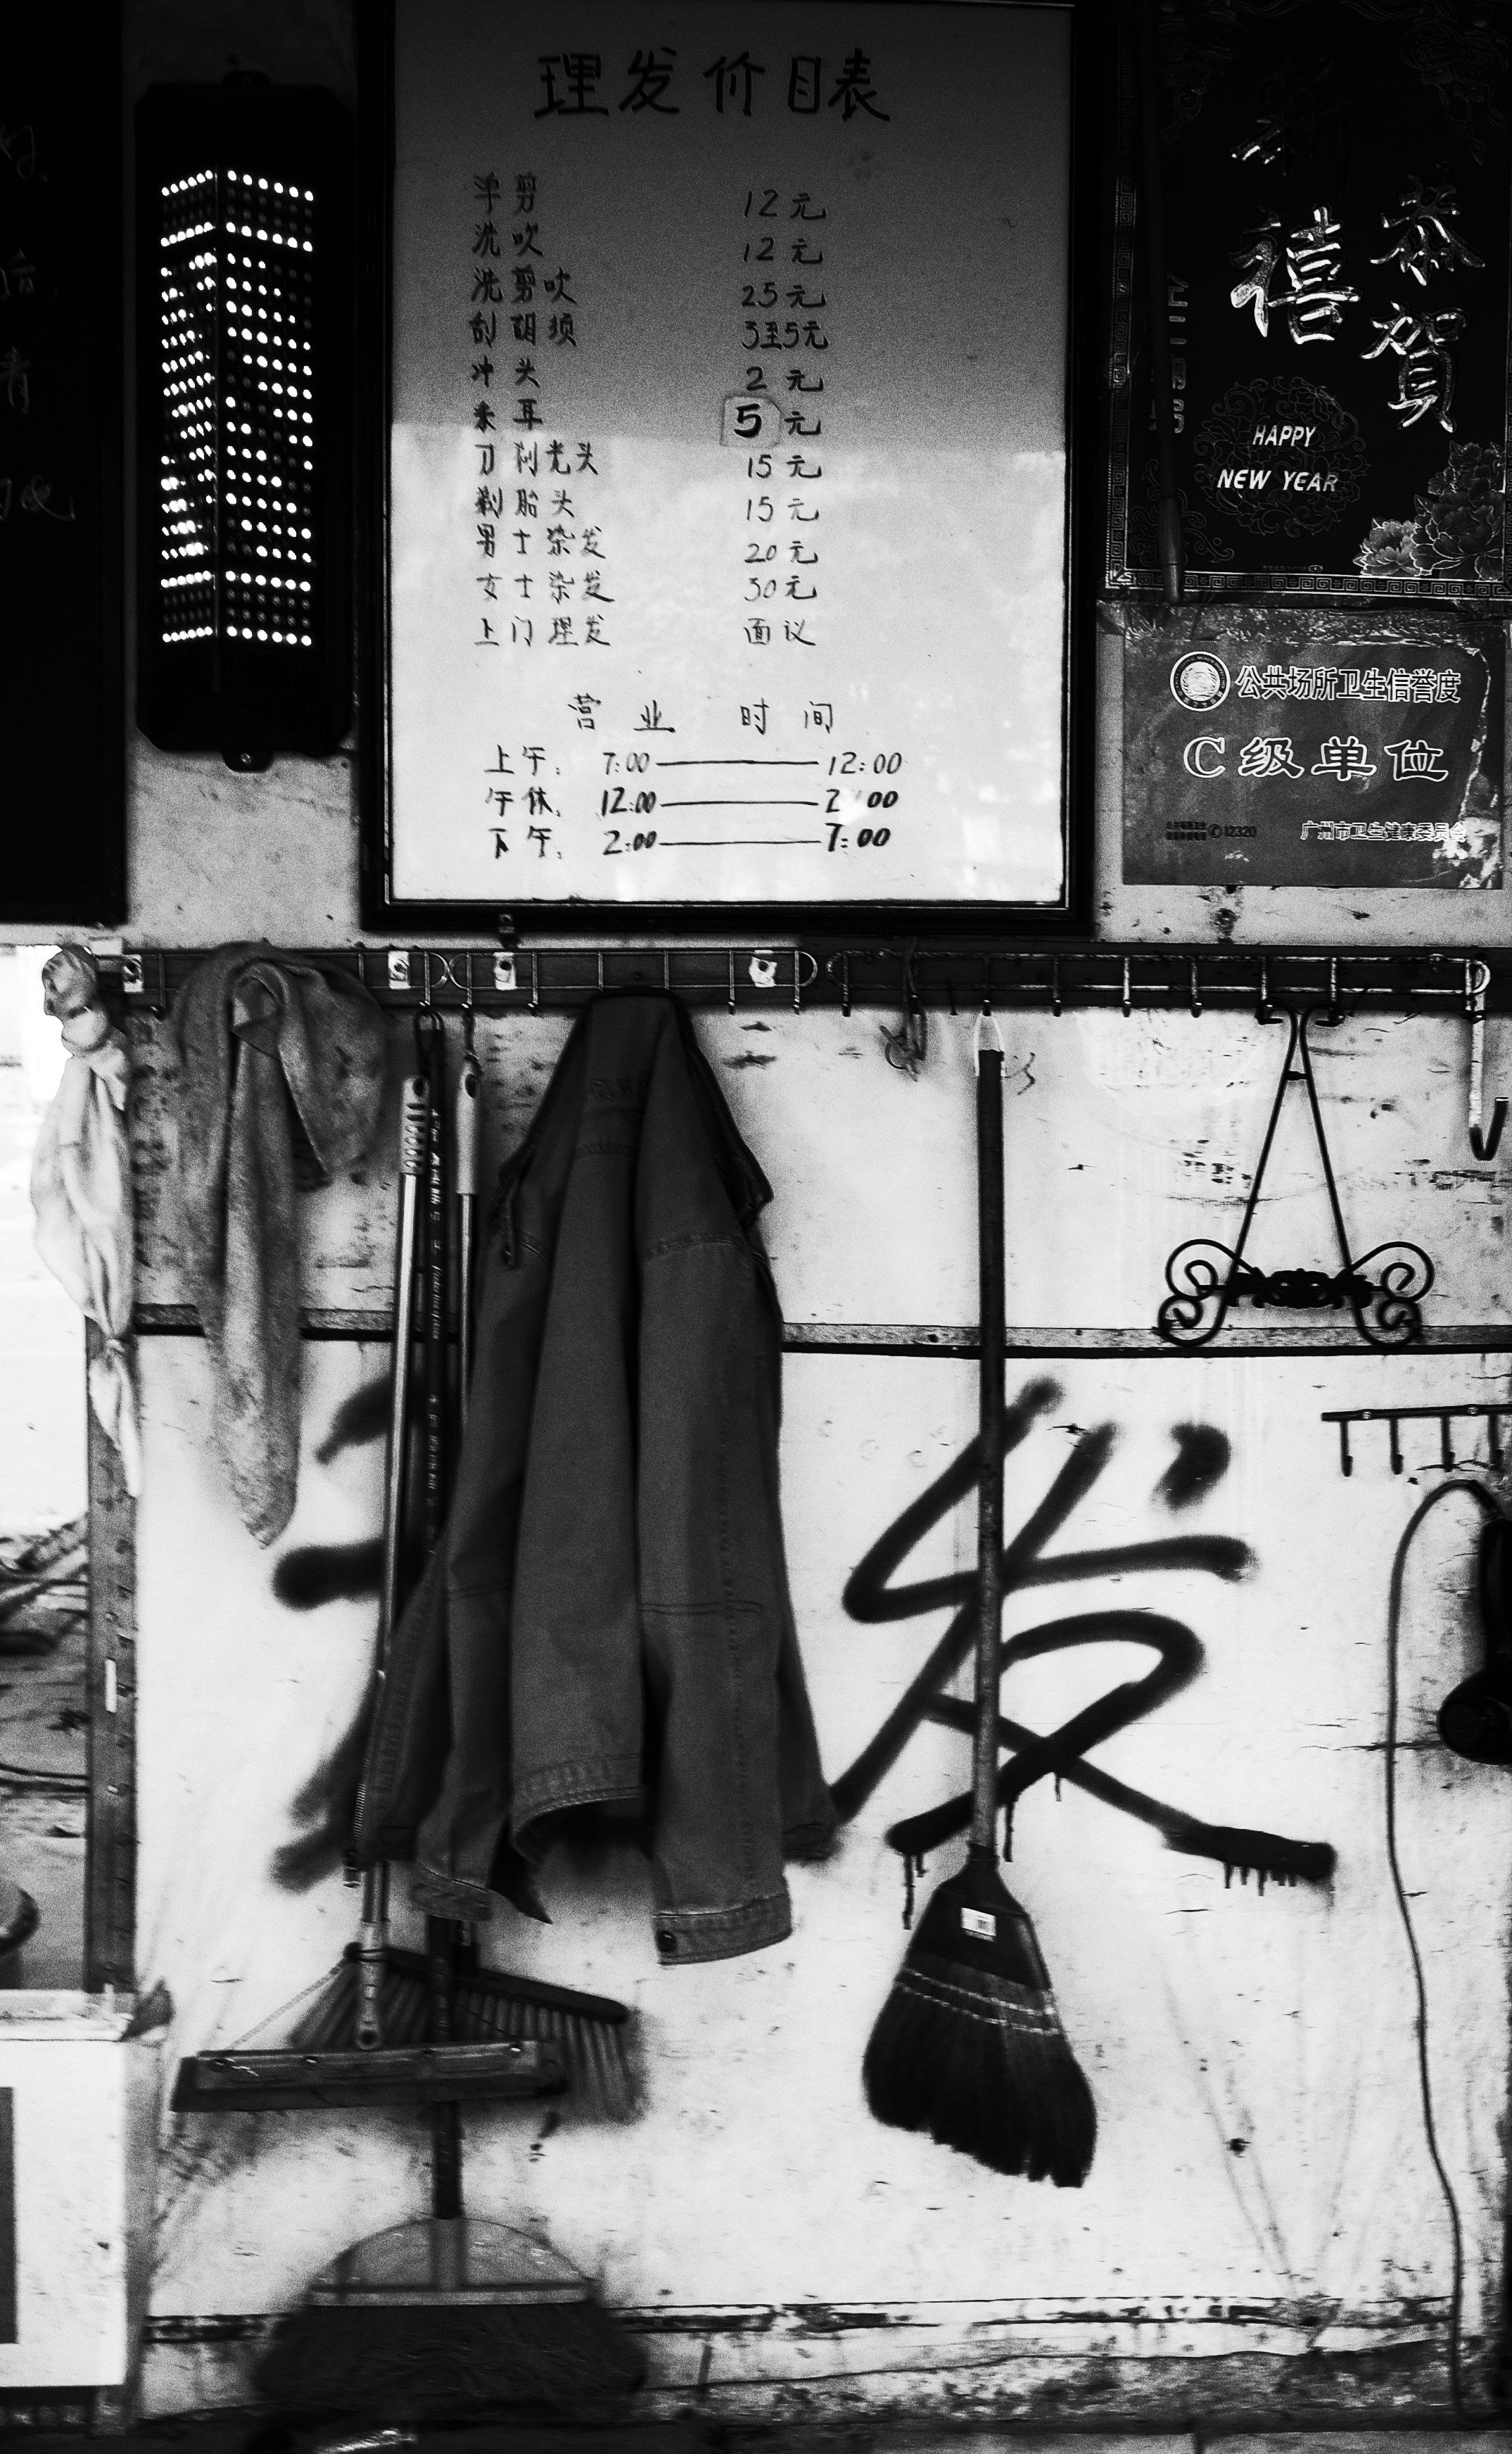 理发价目表
单剪 12元
洗吹 12元
洗剪吹 25元
刮胡须 3至5元
冲头 2元
采耳 5元
刀刮光头 15元
剃胎头 15元
男士染发 20元
女士染发 30元
上门理发 面议
营业 时间
上午: 7:00——12:00
午休: 12:00——2 00
下午: 2:00——7:00
恭賀
新禧
HAPPY
NEW YEAR
公共场所卫生信誉度
C级单位
12320 广州市卫生健康委员会
发